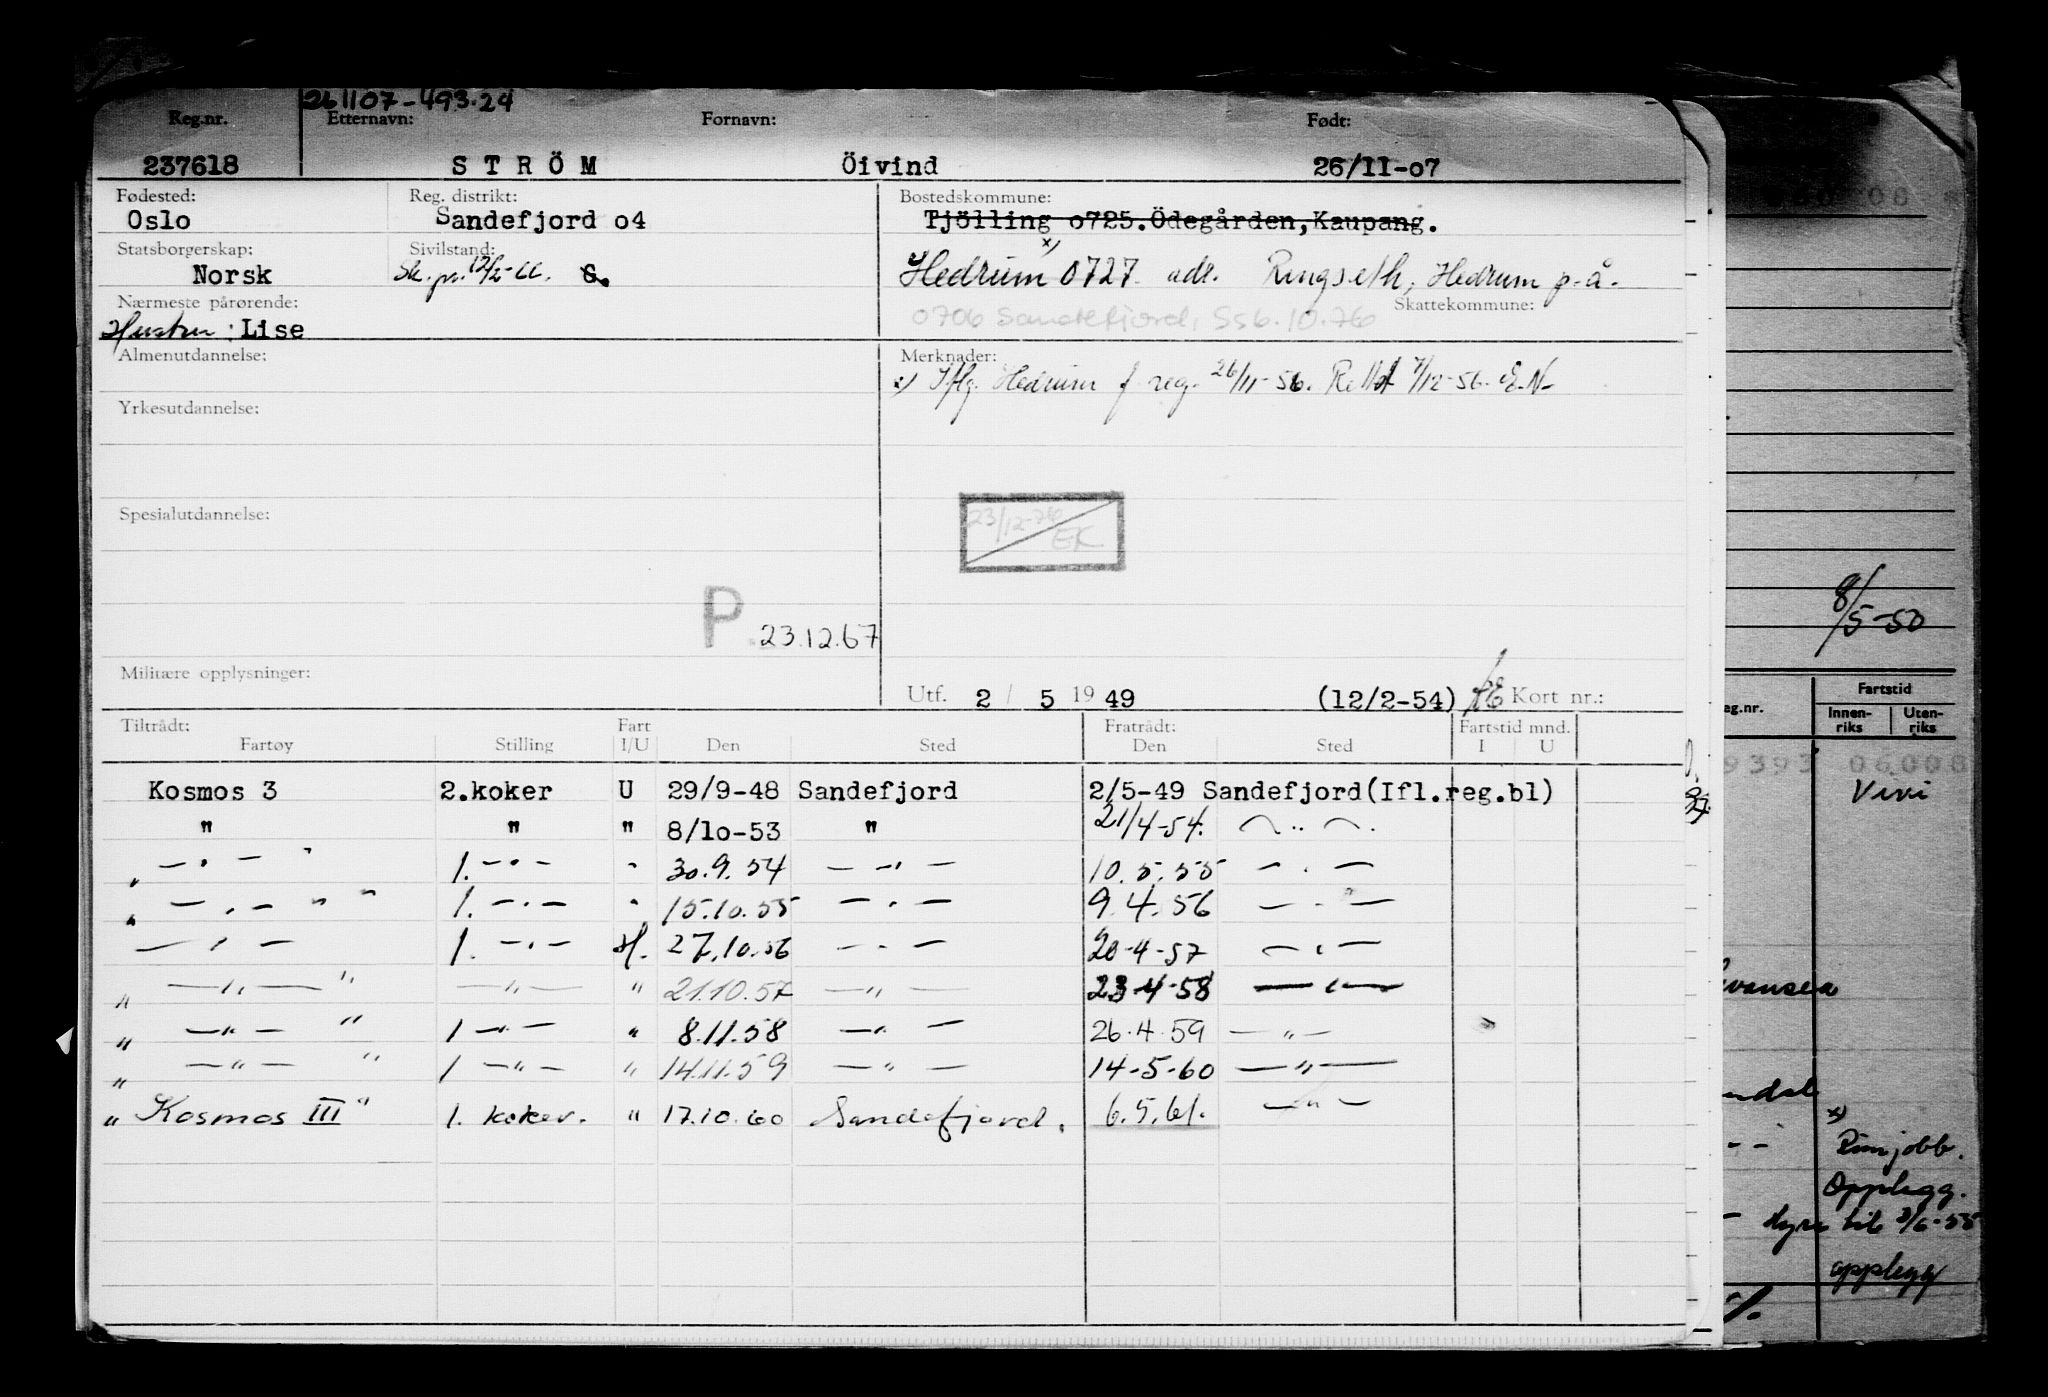 261107-493.24
Reg.nr. Etternavn: Fornavn: Født:
237618 STRÖM Öivind 26/11-07
Fødested: Reg. distrikt: Bostedskommune:
Oslo Sandefjord o4 Tjölling o725.Ödegården,Kaupang.
Statsborgerskap: Sivilstand: x)
Norsk Sk. pr. 12/2-66. G. Hedrum 0727 adr. Ringseth, Hedrum p.å.
Nærmeste pårørende: Skattekommune:
Hustru: Lise 0706 Sandefjord, Ss6.10.76
Almenutdannelse: Merknader:
x) Iflg. Hedrum f.reg. 26/11-56. Rettet 7/12-56. E.N.
Yrkesutdannelse:
Spesialutdannelse: 23/12-76 EK
P. 23.12.67
Militære opplysninger:
Utf. 2 / 5 19 49 (12/2-54) Kort nr.:
Tiltrådt: Fart Fratrådt: Fartstid mnd.
Fartøy Stilling I/U Den Sted Den Sted I U
Kosmos 3 2.koker U 29/9-48 Sandefjord 2/5-49 Sandefjord(Ifl.reg.bl)
" " " 8/10-53 " 21/4-54. - " -
" - " - " 1. - " - " 30.9.54 - " - 10.5.55 - " -
" - " - " 1. - " - " 15.10.55 - " - 9.4.56 - " -
- " - 1. - " - H. 27.10.56 - " - 20-4-57 - " -
" - " - " - " - " 21.10.57 - " - 23-4-58 - " -
" - " - " 1 - " - " 8.11.58 - " - 26.4.59 - " -
" - " - " 1 - " - " 14.11.59 - " - 14-5-60 - " -
" Kosmos III " 1. koker. " 17.10.60 Sandefjord. 6.5.61. - " -
8/5-50
eg.nr. Fartstid
Innen-riks Uten-riks
9393 06008
Vivi
x)
Opplegg.
hyre til 3/6-55
opplegg